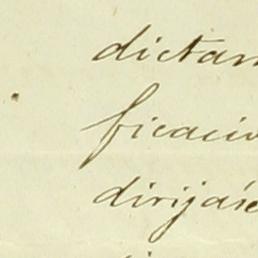 dictam
ficacio
dirijase